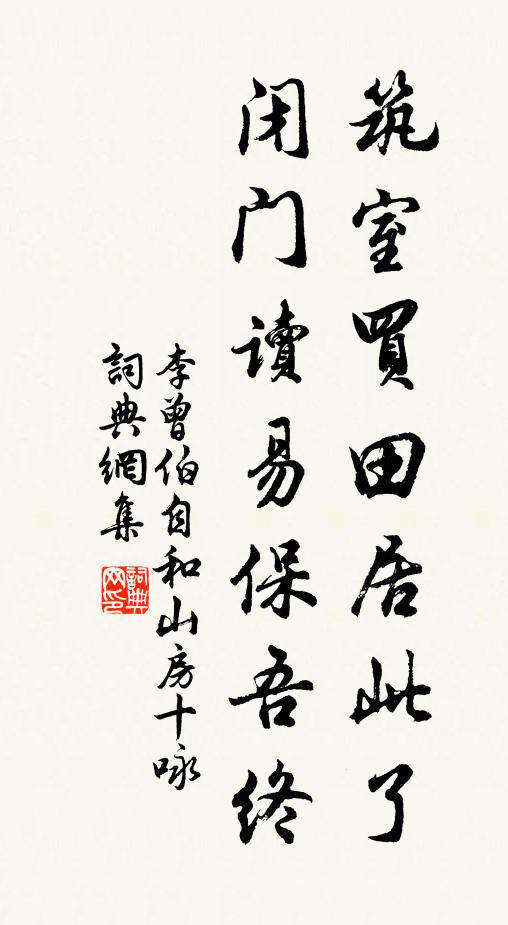 筑室買田居此了
闭门讀易保吾终
李曾伯自和山房十咏
詞典網集
詞典网印